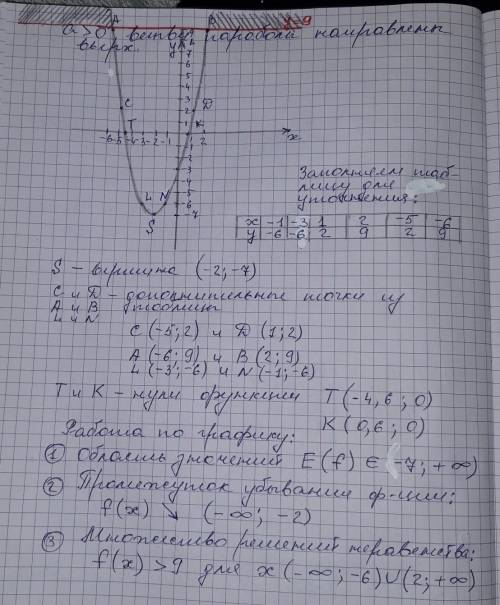 A B y=9
a>0 ветви параболы направлены
вверх.
y
7
6
5
4
3
2
1
C D
T K
-6 -5 -4 -3 -2 -1 1 2 x
-1
-2
-3
-4
-5
-6
-7
L N
S
Заполняем таб-
лицу для
уточнения:
x -1 -3 1 2 -5 -6
y -6 -6 2 9 2 9
S – вершина (-2; -7)
C и D – дополнительные точки из
A и B таблицы
L и N
C (-5; 2) и D (1; 2)
A (-6; 9) и B (2; 9)
L (-3; -6) и N (-1; -6)
T и K – нули функции T (-4,6; 0)
K (0,6; 0)
Работа по графику:
① Область значений E(f) ∈ (-7; +∞)
② Промежуток убывания ф-ции:
f(x) ↘ (-∞; -2)
③ Множество решений неравенства:
f(x) > 9 для x (-∞; -6) ∪ (2; +∞)